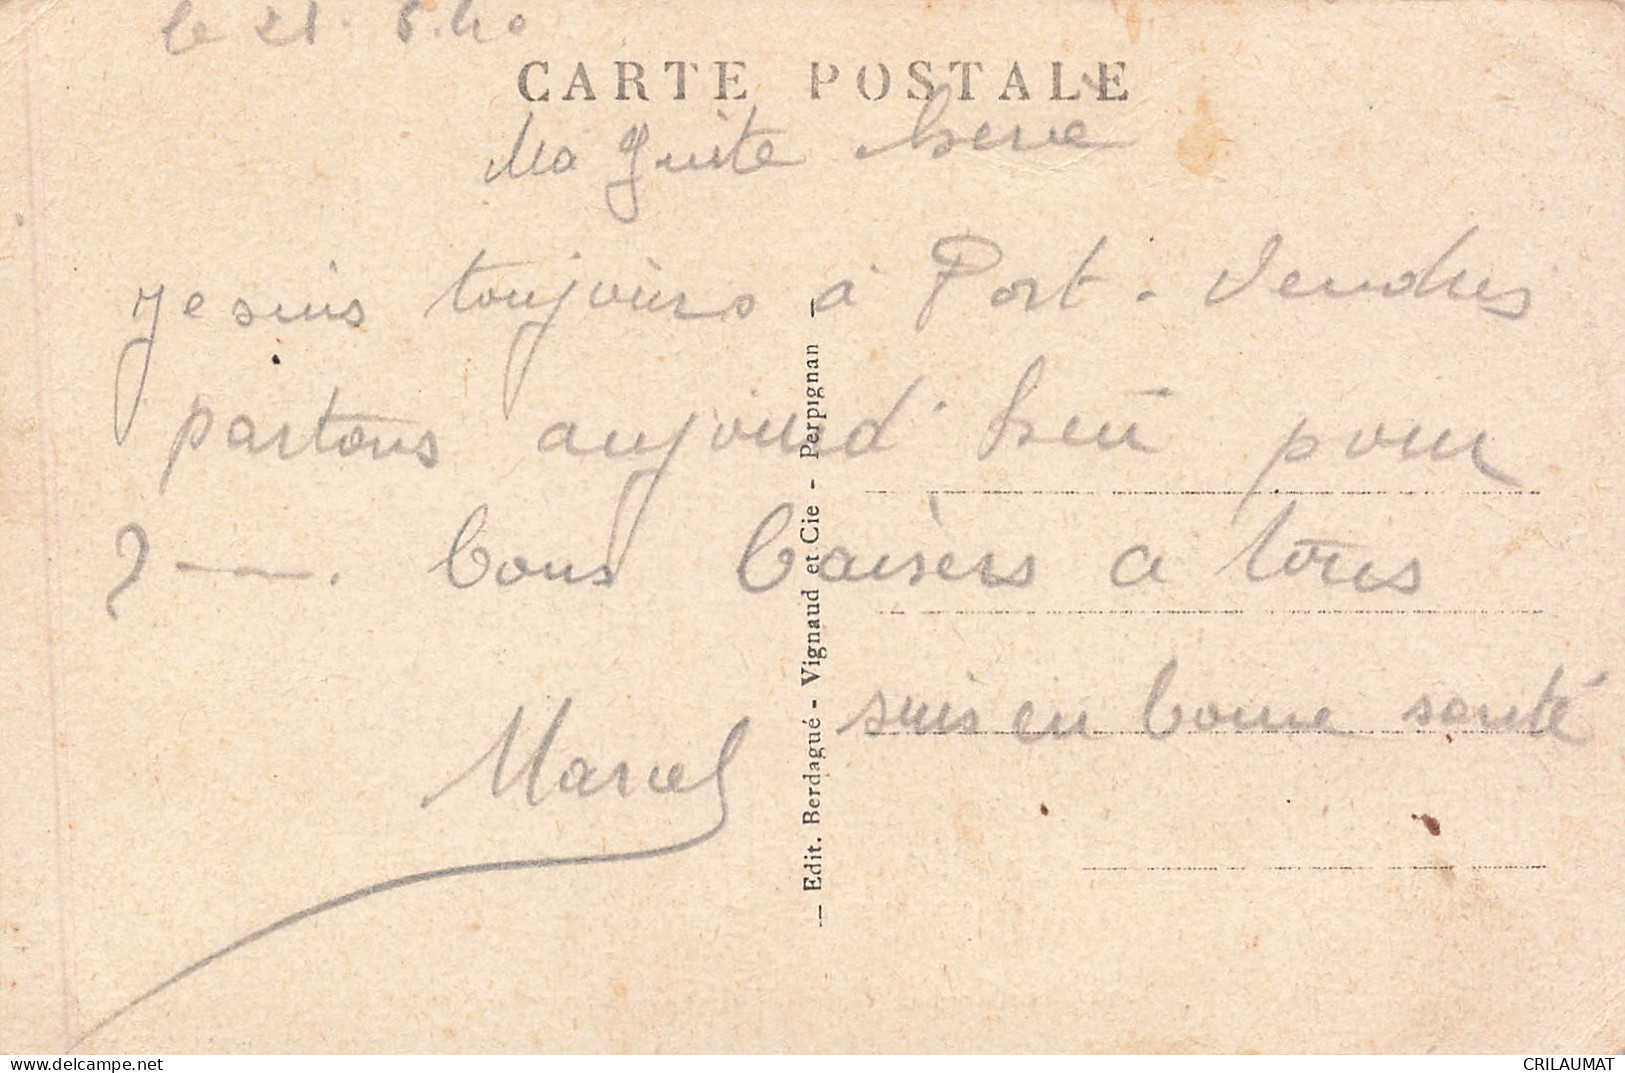 le 21. 5. 40
CARTE POSTALE
Ma Guite cherie
Je suis toujours à Port-Vendres
partons aujourd'hui pour
? —. bons baisers a tous
suis en bonne santé
Marcel
— Edit. Berdagué - Vignaud et Cie - Perpignan —
delcampe.net
CRILAUMAT